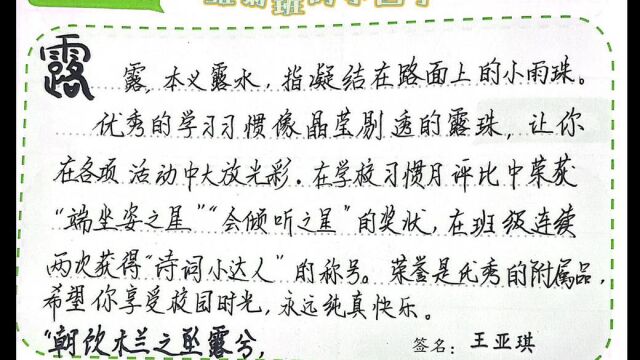 露
露,本义露水,指凝结在路面上的小雨珠。
优秀的学习习惯像晶莹剔透的露珠,让你
在各项活动中大放光彩.在学校习惯月评比中荣获
“端坐姿之星”“会倾听之星”的奖状,在班级连续
两次获得“诗词小达人”的称号。荣誉是优秀的附属品,
希望你享受校园时光,永远纯真快乐。
“朝饮木兰之坠露兮,
签名:王亚琪